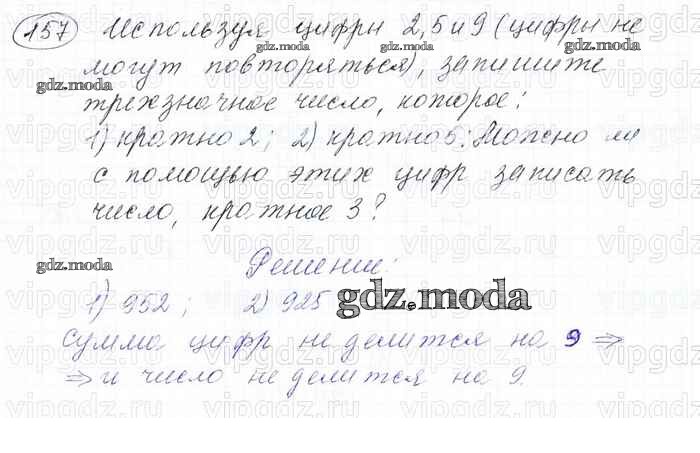 157 Используя цифры 2, 5 и 9 (цифры не
могут повторяться), запишите
трехзначное число, которое:
1) кратно 2; 2) кратно 5. Можно ли
с помощью этих цифр записать
число, кратное 3?
Решение:
1) 952; 2) 925
Сумма цифр не делится на 9 ⇒
⇒ и число не делится на 9.
gdz.moda
vipgdz.ru